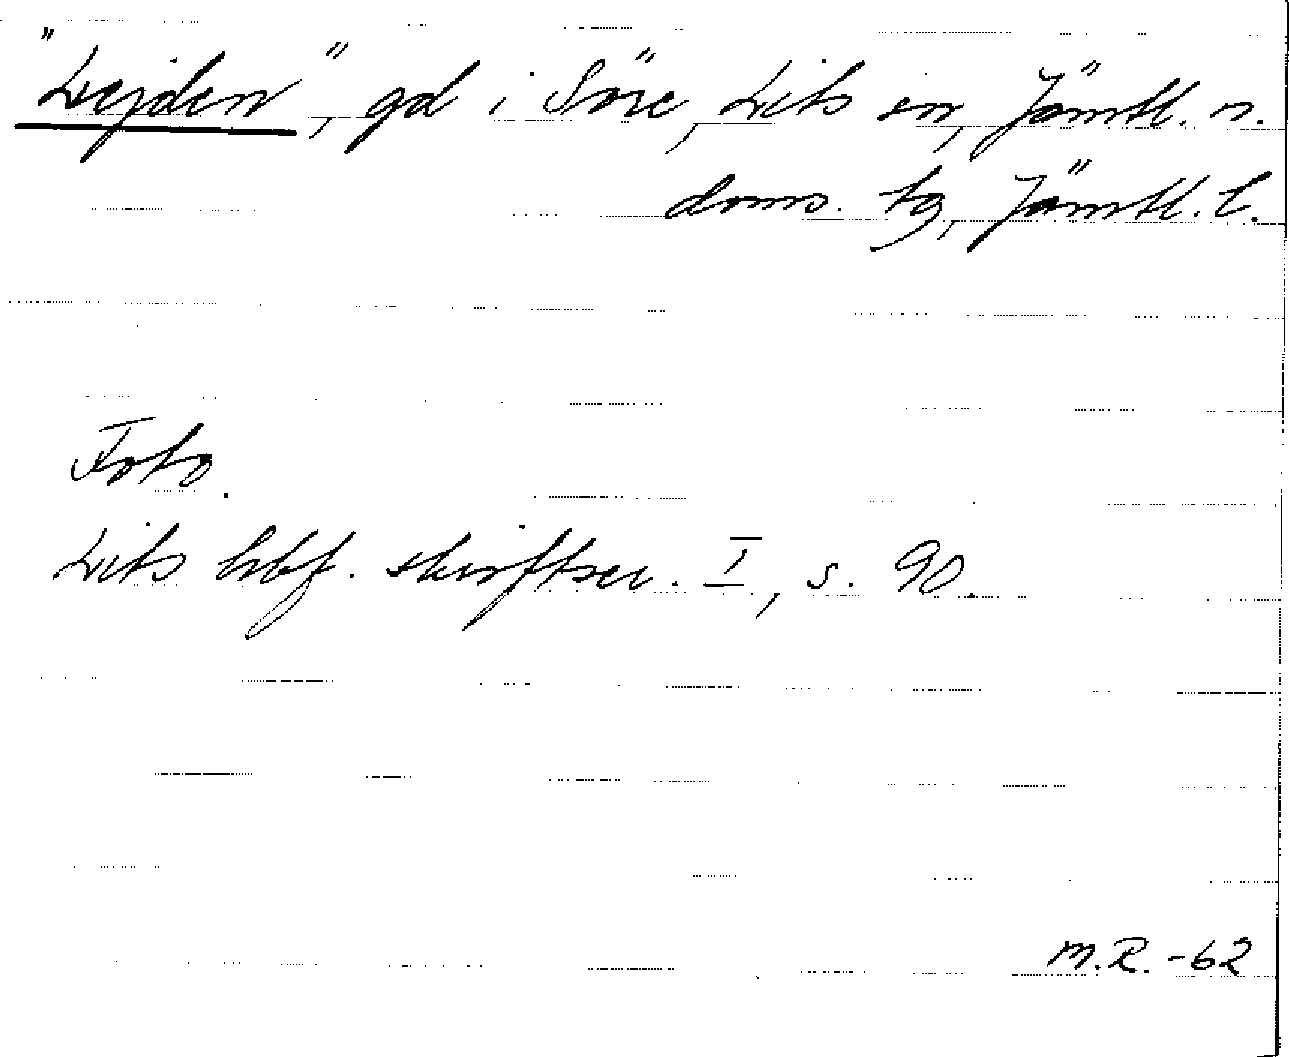 "Lejden", gd i Söre, Lits sn, Jämtl. n.
doms. tg, Jämtl. l.
Foto.
Lits hbf. skriftser. I, s. 90.
M.R. -62